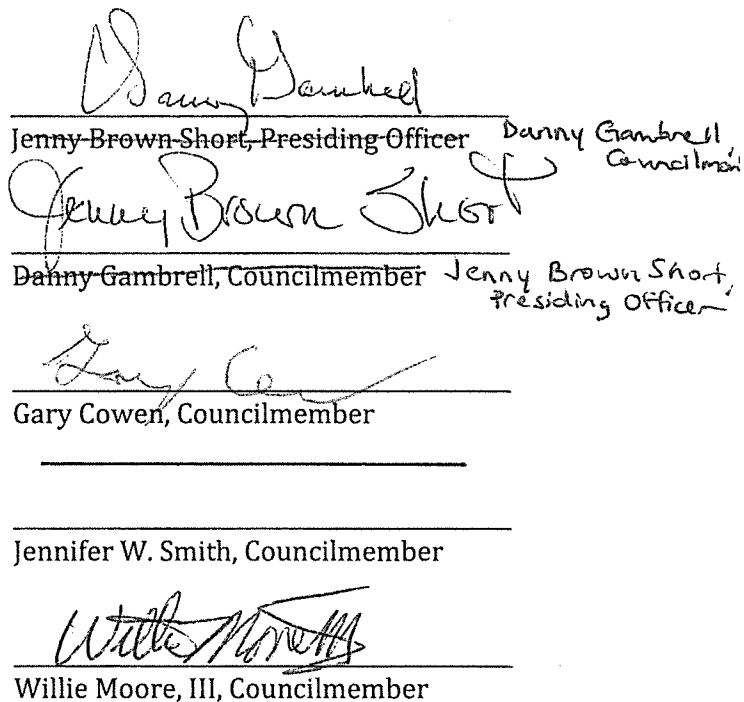 Danny Gambrell
Jenny Brown Short, Presiding Officer Danny Gambrell,
Councilman
Jenny Brown Short
Danny Gambrell, Councilmember Jenny Brown Short,
Presiding Officer
Gary Cowen
Gary Cowen, Councilmember
Jennifer W. Smith, Councilmember
Willie Moore III
Willie Moore, III, Councilmember